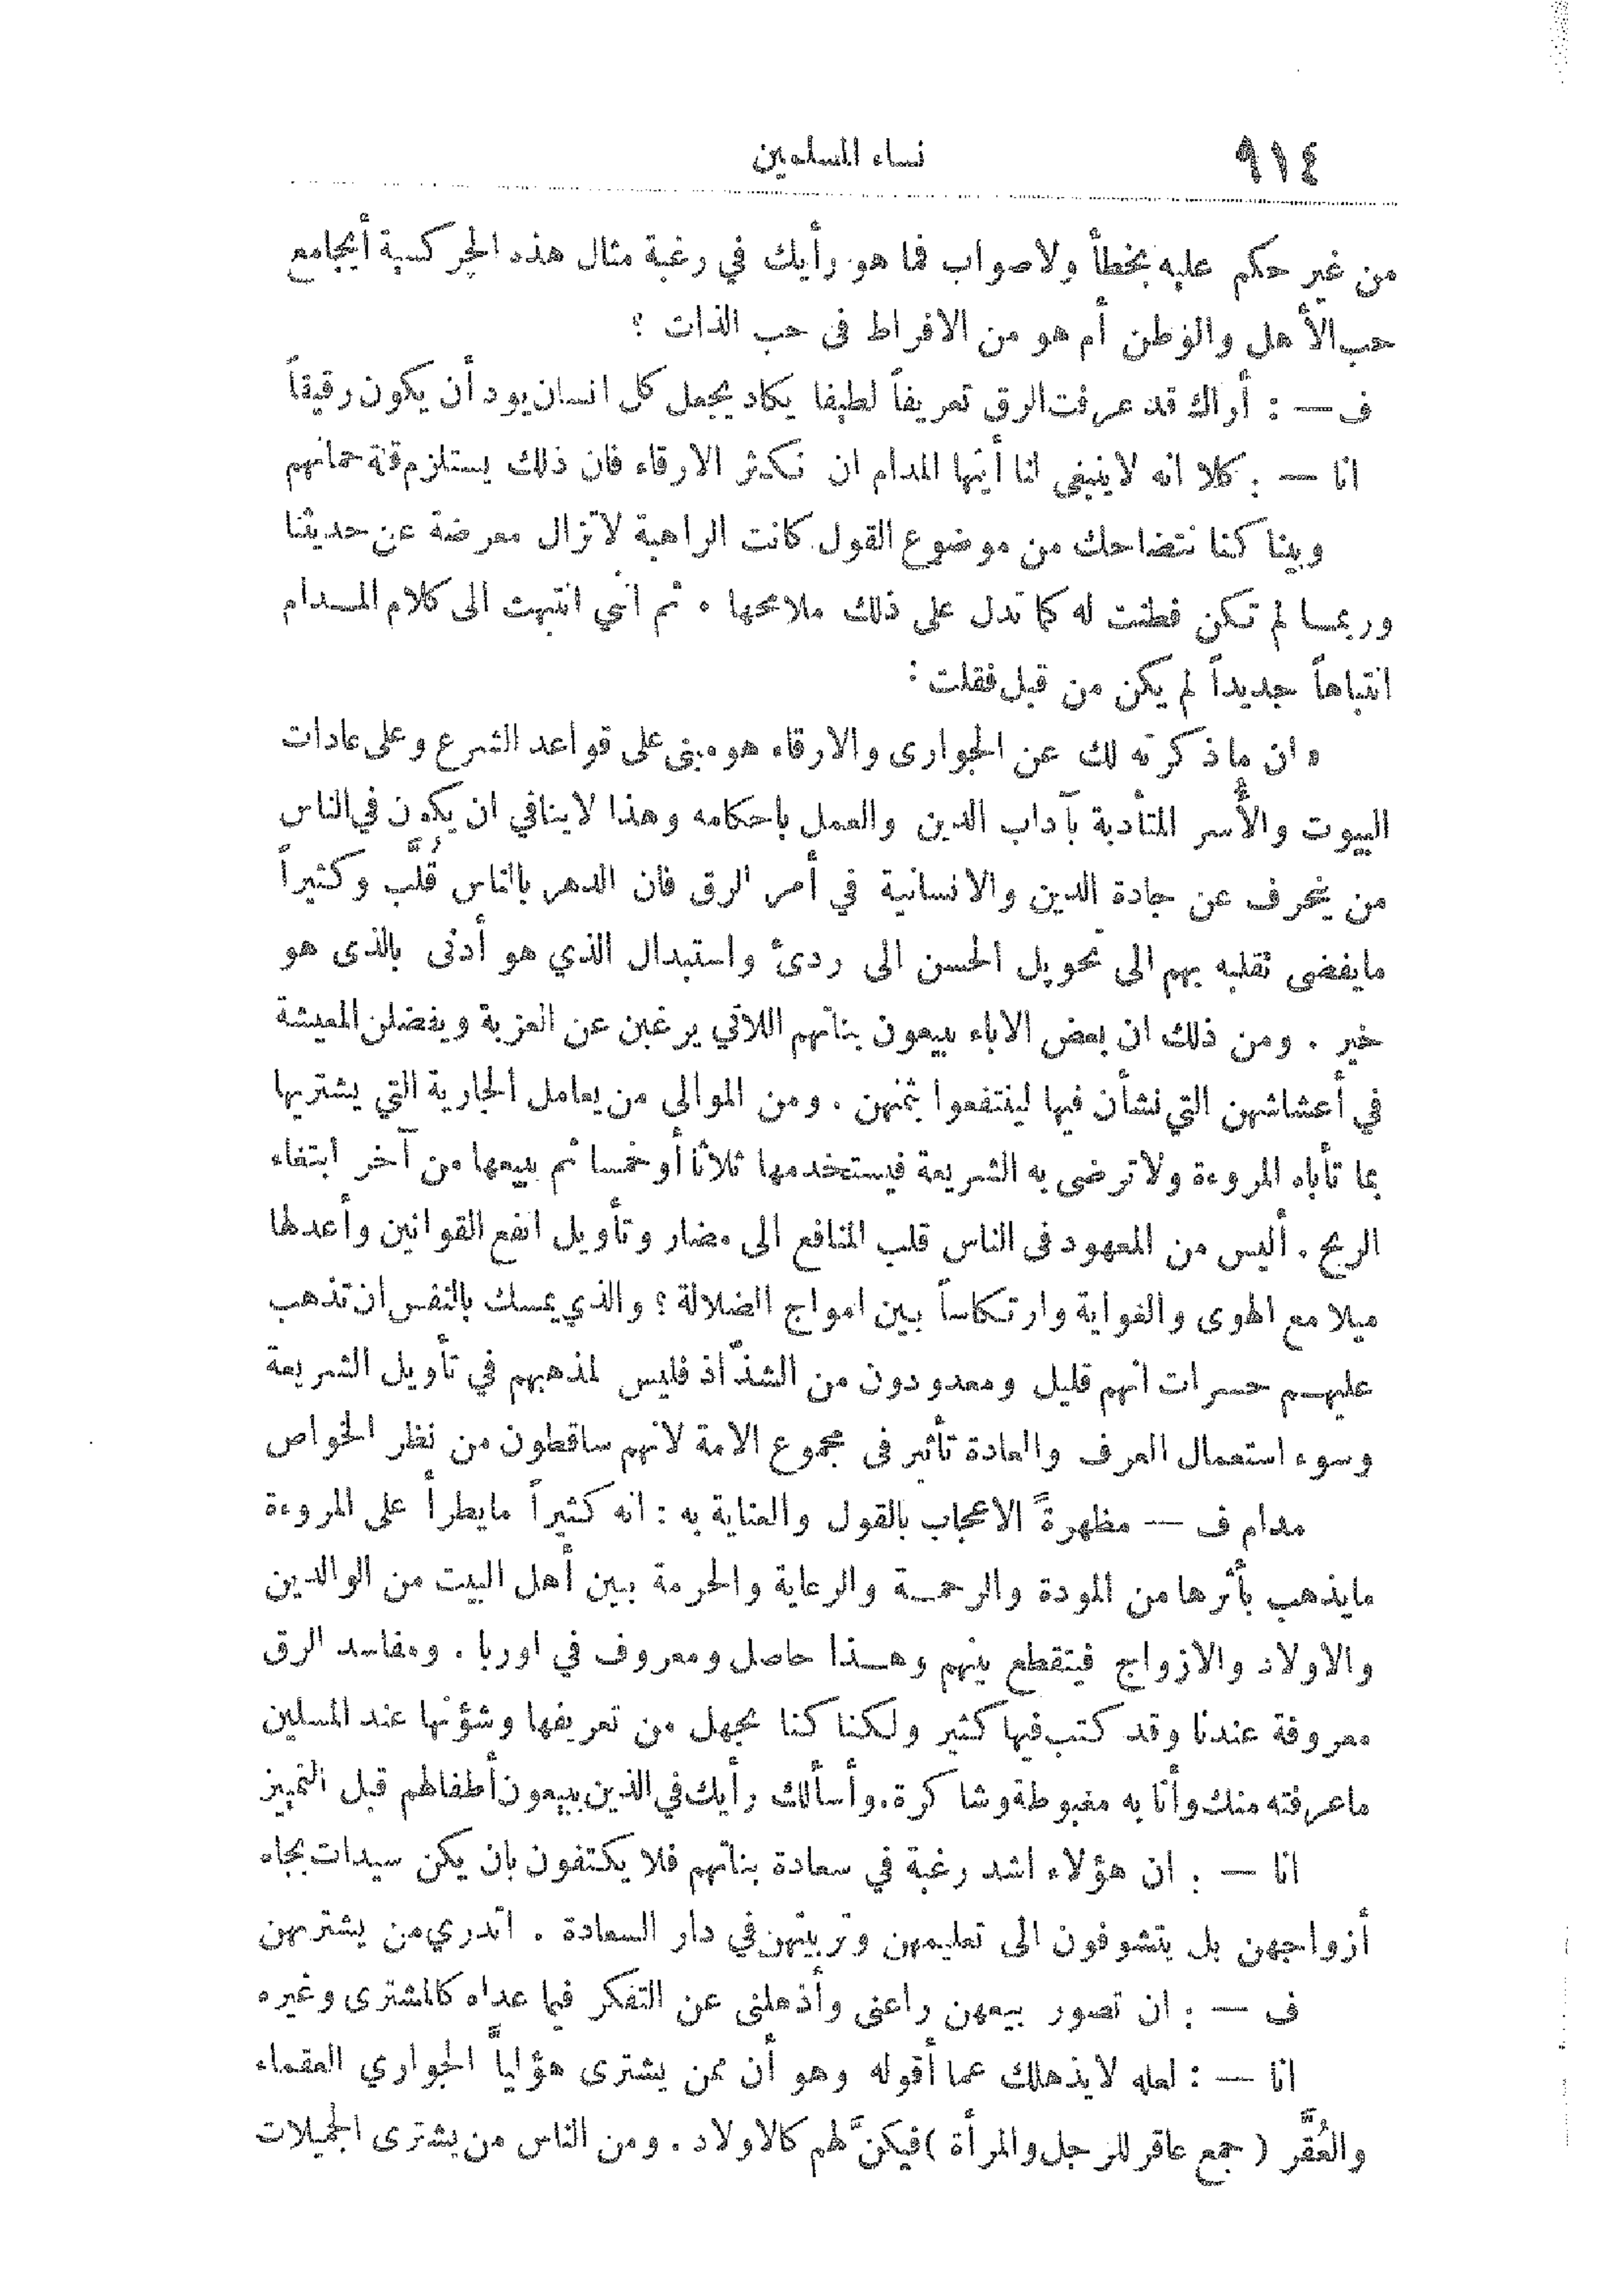 ٩١٤
نساء المسلمين
من غير حكم عليه بخطأ ولاصواب فما هو رأيك في رغبة مثال هذه الجركسية أيجامع
حب الأهل والوطن أم هو من الافراط فى حب الذات ؟
ف — : أراك قد عرفت الرق تعريفاً لطيفا يكاد يجعل كل انسان يود أن يكون رقيقاً
انا — : كلا انه لاينبغى لنا أيتها المدام ان نكثر الارقاء فان ذلك يستلزم قلة حماتهم
وبينا كنا نتضاحك من موضوع القول كانت الراهبة لاتزال معرضة عن حديثنا
وربمـا لم تكن فطنت له كما تدل على ذلك ملامحها . ثم انني انتبهت الى كلام المـدام
انتباهاً جديداً لم يكن من قبل فقلت :
« ان ماذكرته لك عن الجوارى والارقاء هو مبنى على قواعد الشرع وعلى عادات
البيوت والأُسر المتأدبة بآداب الدين والعمل باحكامه وهذا لاينافي ان يكون في الناس
من ينحرف عن جادة الدين والانسانية في أمر الرق فان الدهر بالناس قُلَّب وكثيراً
مايفضى تقلبه بهم الى تحويل الحسن الى ردئ واستبدال الذي هو أدنى بالذى هو
خير . ومن ذلك ان بعض الاباء يبيعون بناتهم اللاتي يرغبن عن العزبة ويفضلن المعيشة
في أعشاشهن التي نشأن فيها لينتفعوا بثمنهن . ومن الموالى من يعامل الجارية التي يشتريها
بما تأباه المروءة ولاترضى به الشريعة فيستخدمها ثلاثا أو خمسا ثم يبيعها من آخر ابتغاء
الربح . أليس من المعهود فى الناس قلب المنافع الى مضار وتأويل انفع القوانين وأعدلها
ميلا مع الهوى والغواية وارتكاساً بين امواج الضلالة ؟ والذي يمسك بالنفس ان تذهب
عليهـم حسرات انهم قليل ومعدودون من الشذّاذ فليس لمذهبهم في تأويل الشريعة
وسوء استعمال العرف والعادة تأثير فى مجموع الامة لانهم ساقطون من نظر الخواص
مدام ف — مظهرةً الاعجاب بالقول والعناية به : انه كثيراً مايطرأ على المروءة
مايذهب بأثرها من المودة والرحمـة والرعاية والحرمة بـين أهل البيت من الوالدين
والاولاد والازواج فيتقطع بينهم وهـذا حاصل ومعروف في اوربا . ومفاسد الرق
معروفة عندنا وقد كتب فيها كثير ولكنا كنا نجهل من تعريفها وشؤنها عند المسلمين
ماعرفته منك وأنا به مغبوطة وشاكرة. وأسألك رأيك في الذين يبيعون أطفالهم قبل التمييز
انا — : ان هؤلاء اشد رغبة في سعادة بناتهم فلا يكتفون بان يكن سيدات بجاه
أزواجهن بل يتشوفون الى تعليمهن وتربيتهن في دار السعادة . اتدري من يشتريهن
ف — : ان تصور بيعهن راعنى وأذهلنى عن التفكر فيما عداه كالمشترى وغيره
انا — : لعله لايذهلك عما أقوله وهو أن ممن يشترى هؤلياًّ الجواري العقماء
والعُقَّر ( جمع عاقر للرجل والمرأة ) فيكنّ لهم كالاولاد . ومن الناس من يشترى الجميلات